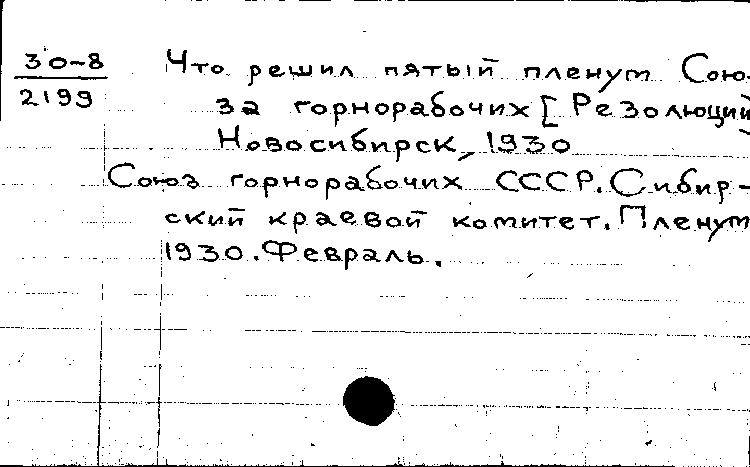 30-8
2199
Что решил пятый пленум Сою-
за горнорабочих [Резолюций
Новосибирск, 1930
Союз горнорабочих СССР. Сибир-
ский краевой комитет. Пленум
1930. Февраль.